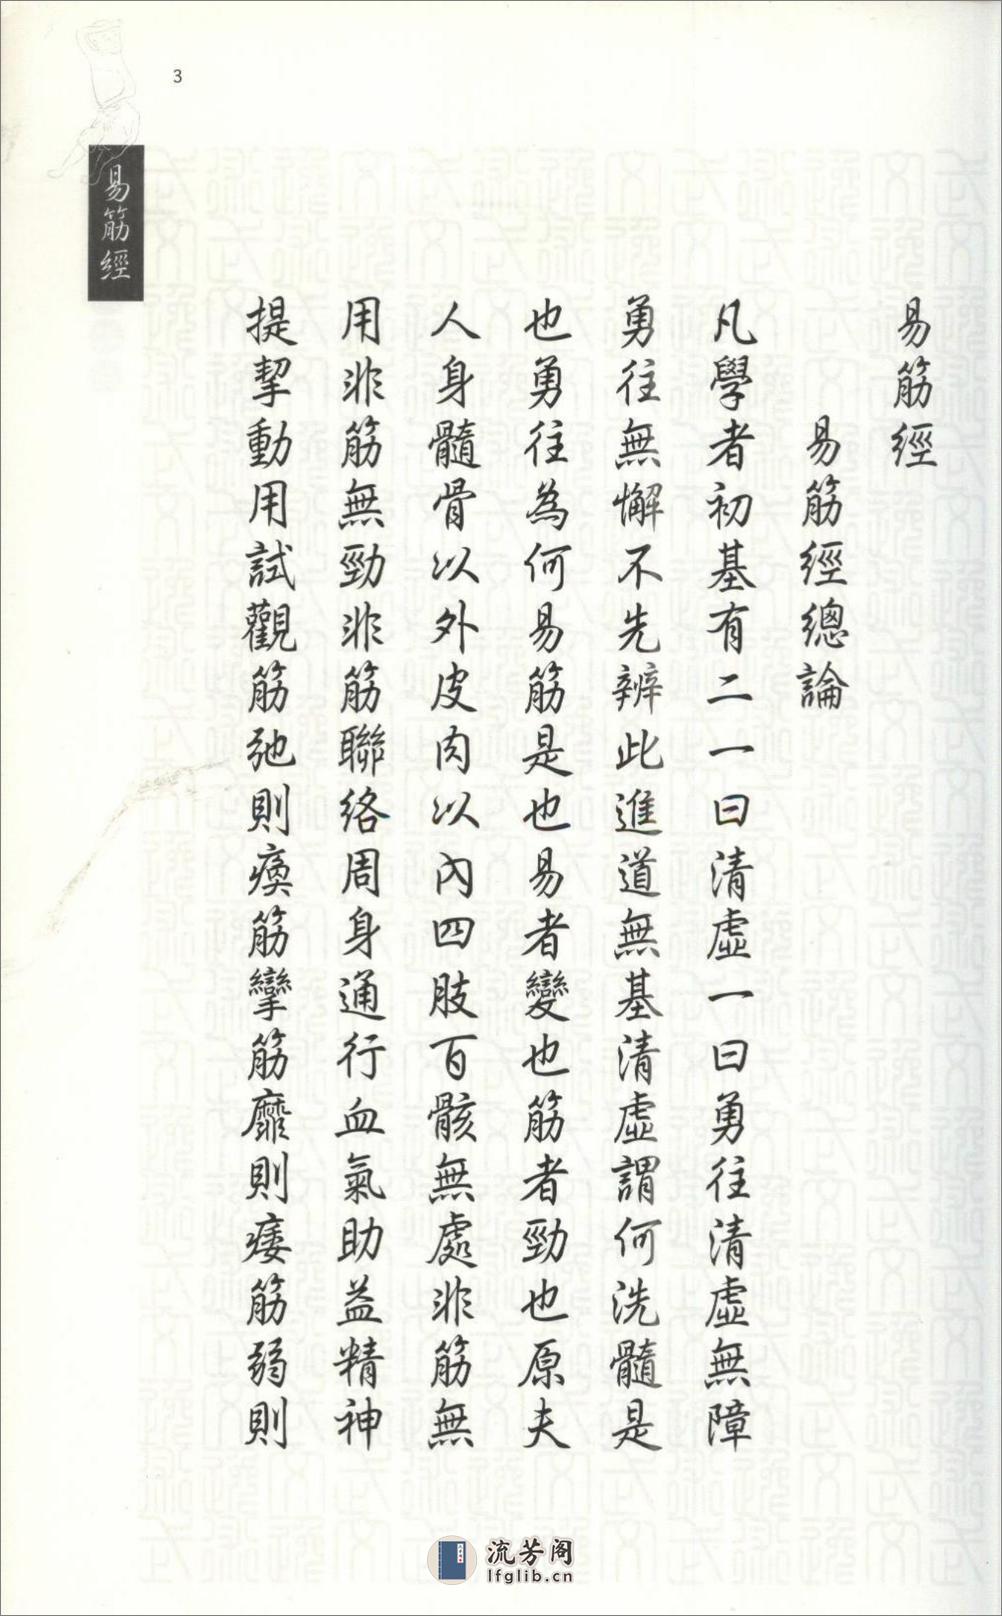 3
易筋經
易筋經
易筋經總論
凡學者初基有二一曰清虛一曰勇往清虛無障
勇往無懈不先辨此進道無基清虛謂何洗髓是
也勇往為何易筋是也易者變也筋者勁也原夫
人身髓骨以外皮肉以內四肢百骸無處非筋無
用非筋無勁非筋聯絡周身通行血氣助益精神
提挈動用試觀筋弛則瘓筋攣筋靡則痿筋弱則
流芳阁
lfglib.cn